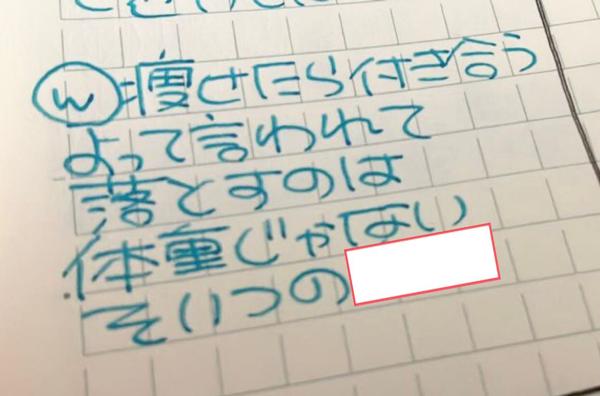 ⓦ:痩せたら付き合う
よって言われて
落とすのは
体重じゃない
そいつの